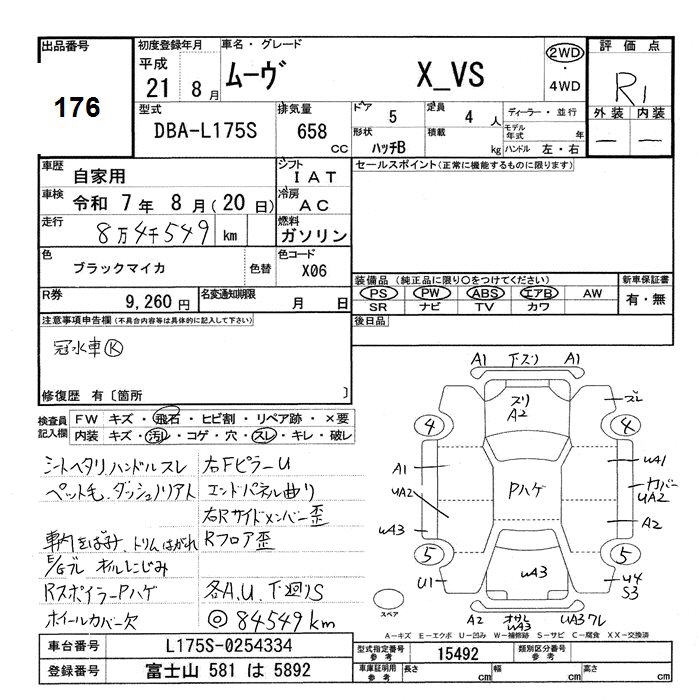 出品番号
176
初度登録年月
平成
21年 8月
車名・グレード
ムーヴ X_VS
2WD
・
4WD
評価点
R1
外装 内装
— —
型式
DBA-L175S
排気量
658 cc
ドア 5
定員 4 人
形状 ハッチB
積載 kg
ディーラー・並行
モデル年式 年
ハンドル 左・右
車歴
自家用
車検
令和 7年 8月(20日)
走行
8万4千549 km
シフト
IAT
冷房
AC
燃料
ガソリン
色
ブラックマイカ
色替
色コード
X06
R券
9,260円
名変通知期限 月 日
セールスポイント(正常に機能するものに限ります)
装備品(純正品に限り○をつけてください)
PS PW ABS エアB AW
SR ナビ TV カワ
新車保証書
有・無
後日品
注意事項申告欄(不具合内容等は具体的に記入して下さい)
冠水車Ⓚ
修復歴 有〔箇所 〕
検査員記入欄
FW キズ・飛石・ヒビ割・リペア跡・×要
内装 キズ・汚レ・コゲ・穴・スレ・キレ・破レ
シートヘタリ ハンドルスレ 右FピラーU
ペット毛、ダッシュノリアト エンドパネル曲り
右Rサイドメンバー歪
トリムはがれ Rフロア歪
E/Gブレ オイルにじみ
RスポイラーPハゲ 各A.U.下廻りS
ホイールカバー欠 ◎84549km
A1 下スリ A1
スリ
A2
ズレ
4 4
A1
UA2
UA3
Pハゲ
UA1
カバー
UA2
A2
5 5
U1
UA3
U4
S3
スペア
A2
UA3
UA3 ワレ
A-キズ E-エクボ U-凹み W-補修跡 S-サビ C-腐食 XX-交換済
車台番号 L175S-0254334
登録番号 富士山 581 は 5892
型式指定番号 参考 15492
類別区分番号 参考
車庫証明用 参考 長さ cm 幅 cm 高さ cm